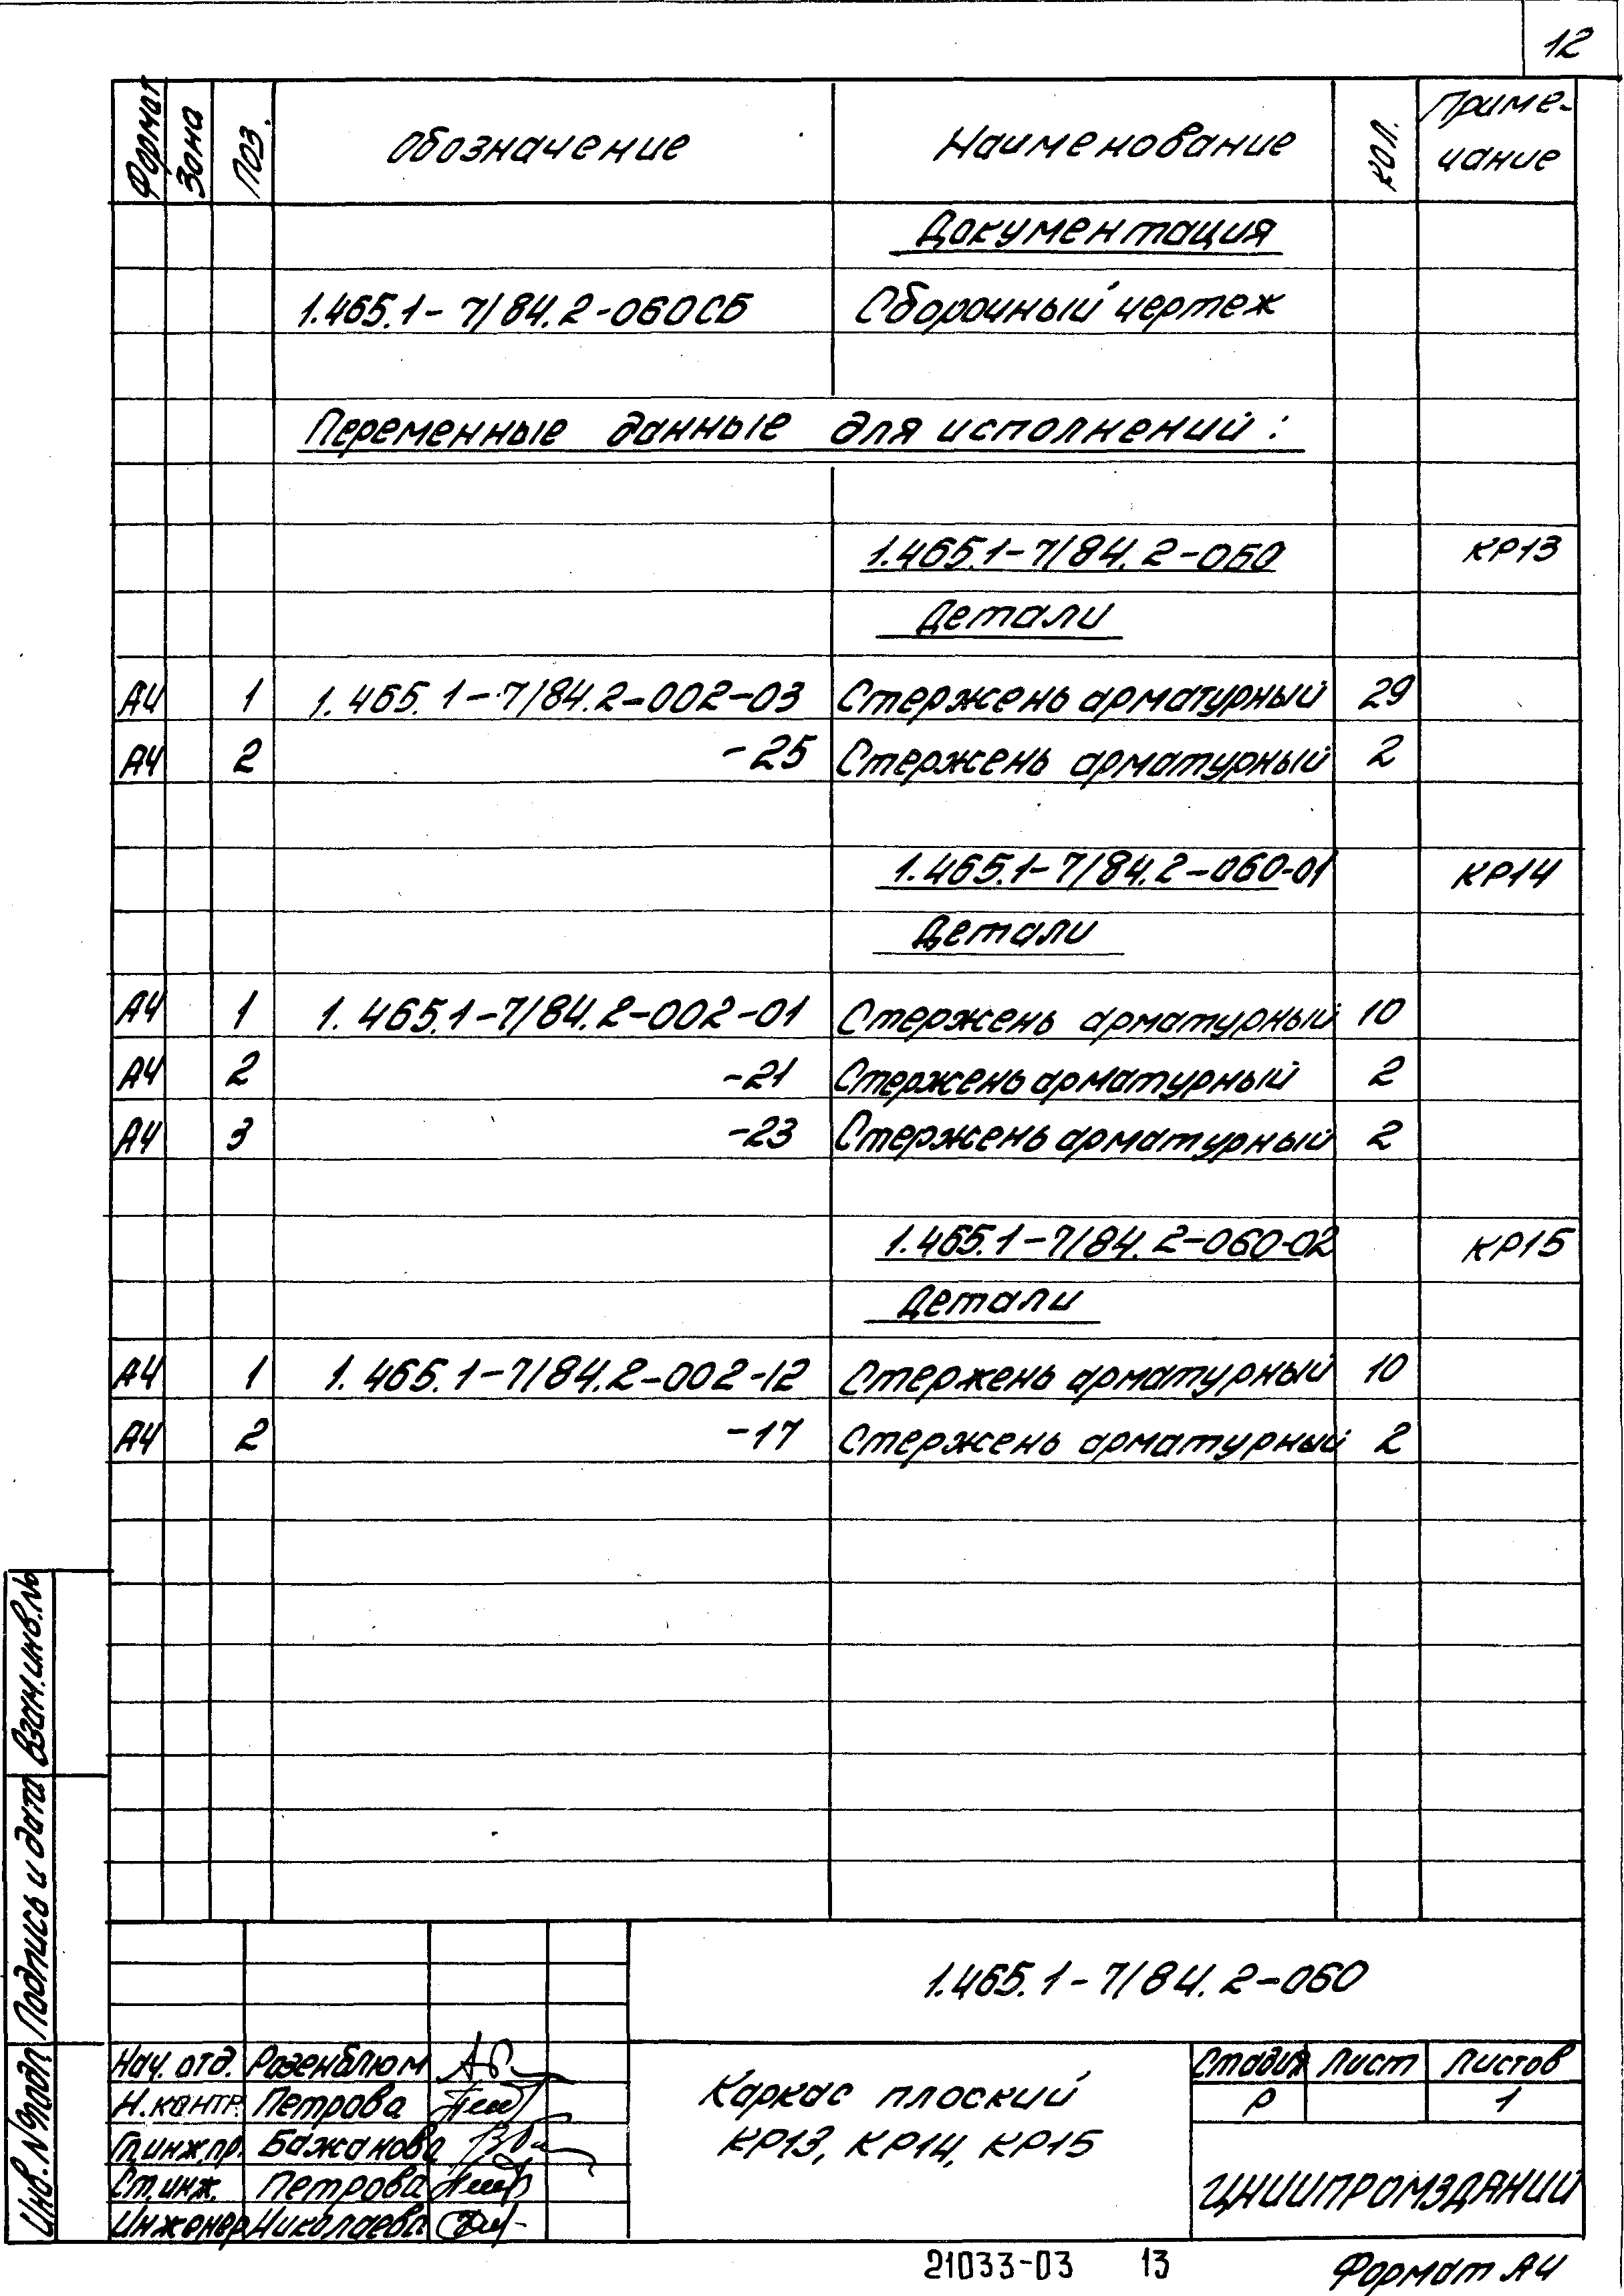 12
Формат Зона Поз. Обозначение Наименование Кол. Приме-
чание
Документация
1.465.1-7/84.2-060СБ Сборочный чертеж
Переменные данные для исполнений:
1.465.1-7/84.2-060 КР13
Детали
А4 1 1.465.1-7/84.2-002-03 Стержень арматурный 29
А4 2 -25 Стержень арматурный 2
1.465.1-7/84.2-060-01 КР14
Детали
А4 1 1.465.1-7/84.2-002-01 Стержень арматурный 10
А4 2 -21 Стержень арматурный 2
А4 3 -23 Стержень арматурный 2
1.465.1-7/84.2-060-02 КР15
Детали
А4 1 1.465.1-7/84.2-002-12 Стержень арматурный 10
А4 2 -17 Стержень арматурный 2
Взам.инв.№
Подпись и дата
Инв.№подл
1.465.1-7/84.2-060
Нач. отд. Розенблюм
Н.контр. Петрова
Гл.инж.пр. Бажанова
Ст.инж. Петрова
Инженер Николаева
Каркас плоский
КР13, КР14, КР15
Стадия Лист Листов
Р 1
ЦНИИПРОМЗДАНИЙ
21033-03 13
Формат А4